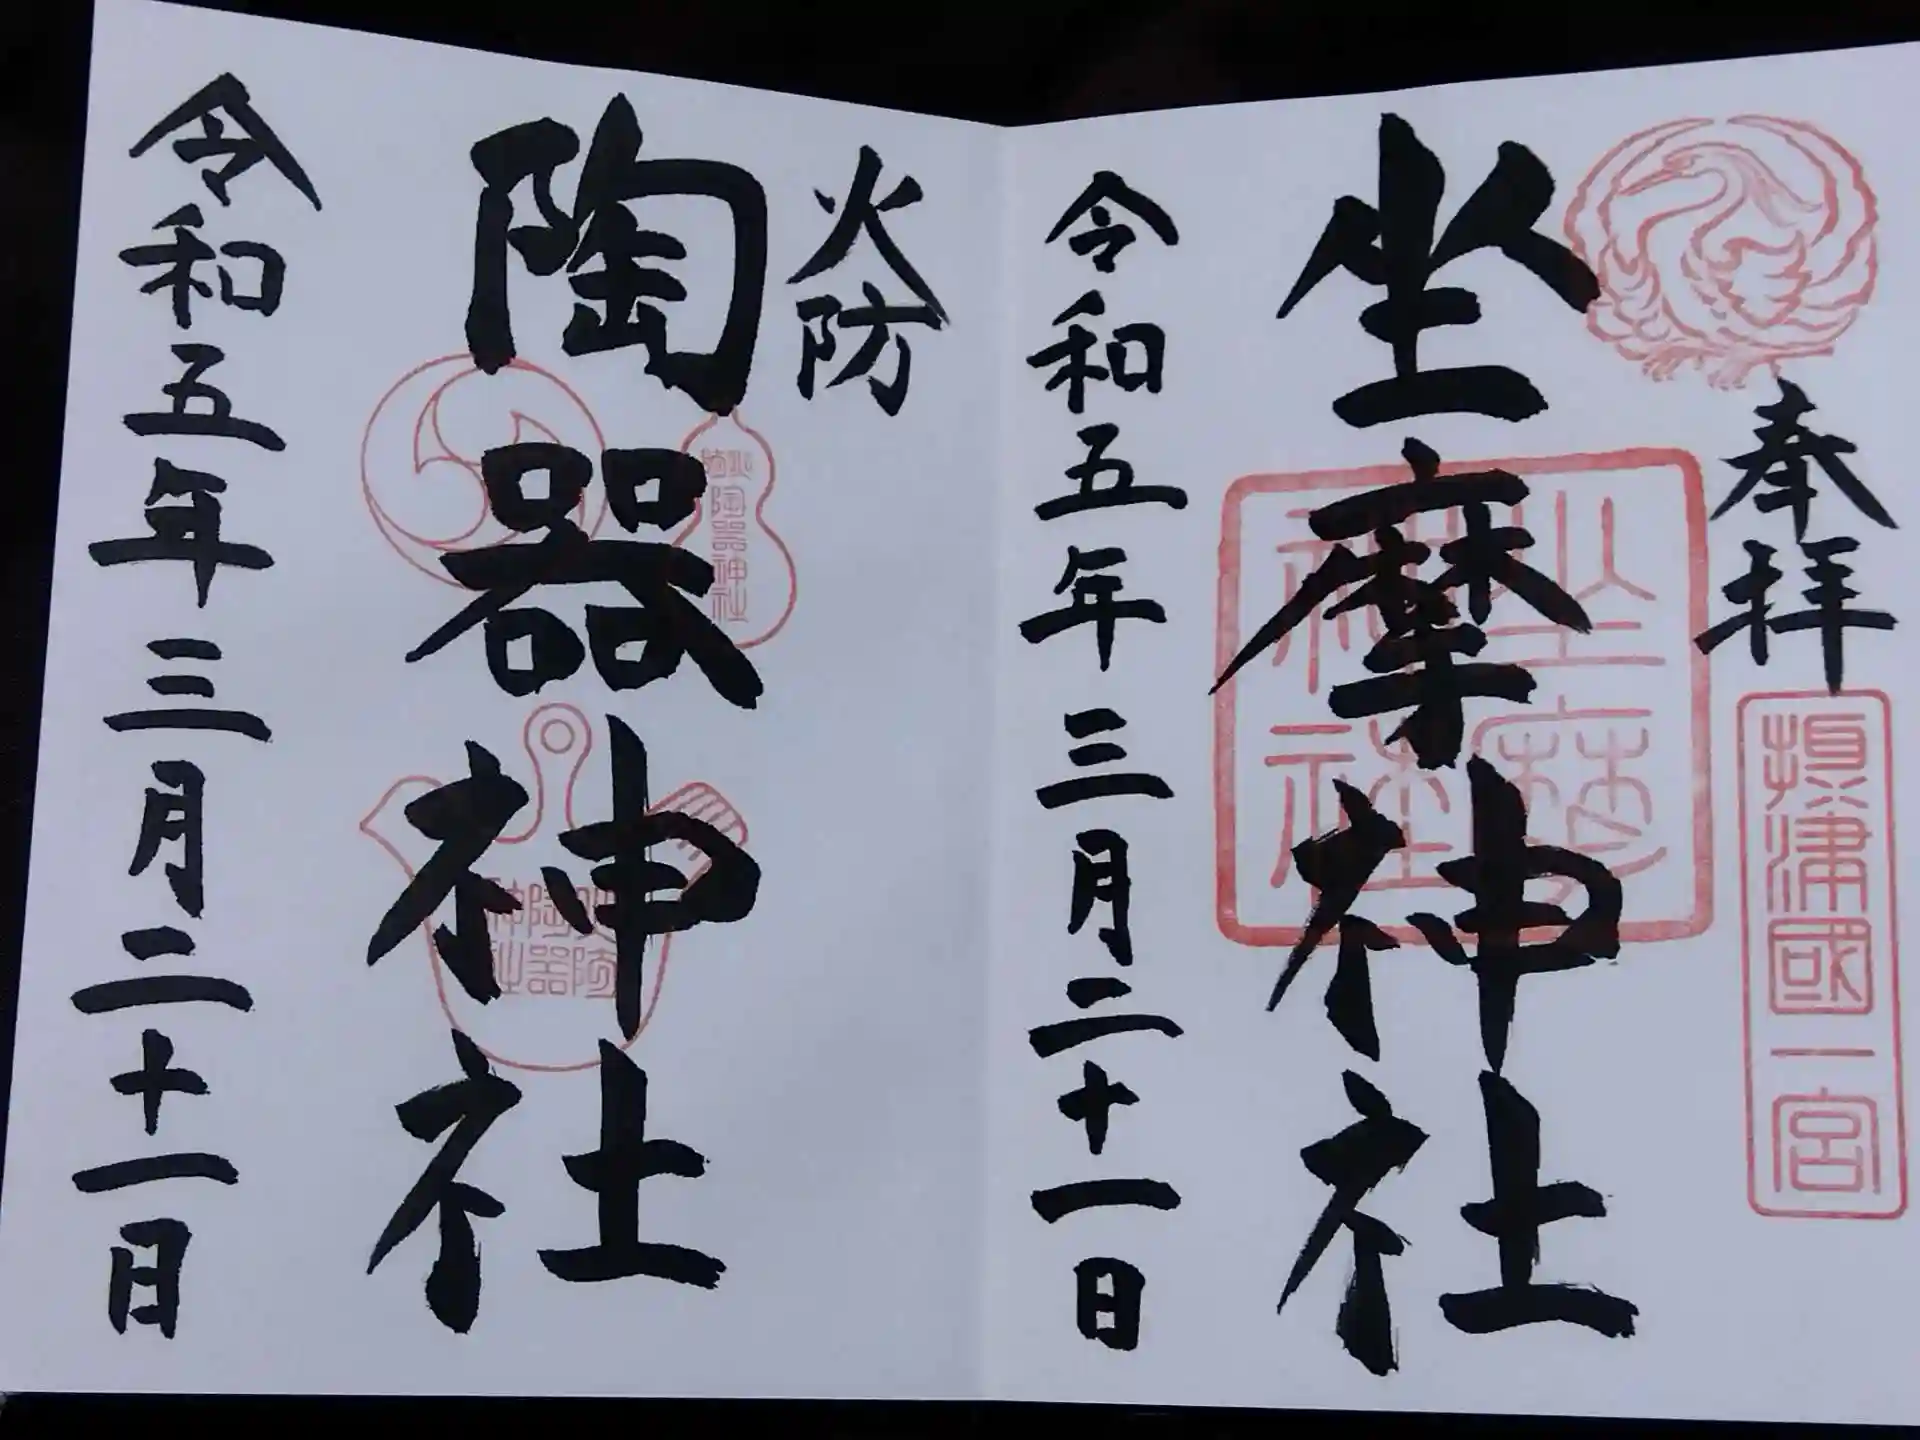 奉拝
摂津國一宮
坐摩神社
坐摩
神社
令和五年三月二十一日
火防
陶器神社
火防
陶器神社
火防
陶器
神社
令和五年三月二十一日